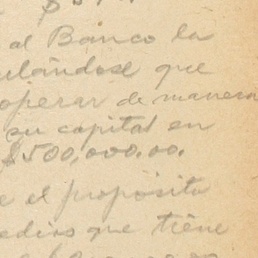 al Banco la
ulándose que
operar de manera
su capital en
$500,000.00.
e el propósito
edios que tiene